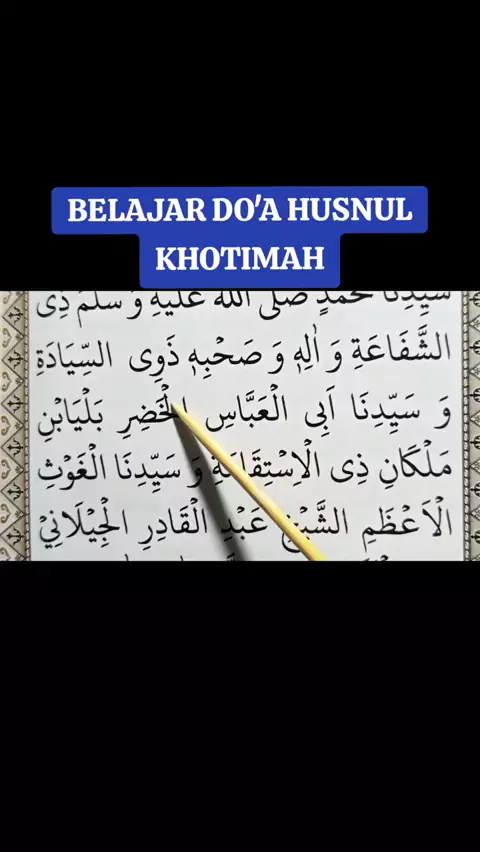 BELAJAR DO'A HUSNUL
KHOTIMAH
سَيِّدِنَا مُحَمَّدٍ صَلَّى اللّٰهُ عَلَيْهِ وَ سَلَّمَ ذِى
الشَّفَاعَةِ وَ اٰلِهٖ وَ صَحْبِهٖ ذَوِى السِّيَادَةِ
وَ سَيِّدِنَا اَبِى الْعَبَّاسِ الْخَضِرِ بَلْيَابْنِ
مَلْكَانِ ذِى الْاِسْتِقَامَةِ وَ سَيِّدِنَا الْغَوْثِ
الْاَعْظَمِ الشَّيْخِ عَبْدِ الْقَادِرِ الْجِيْلَانِيْ